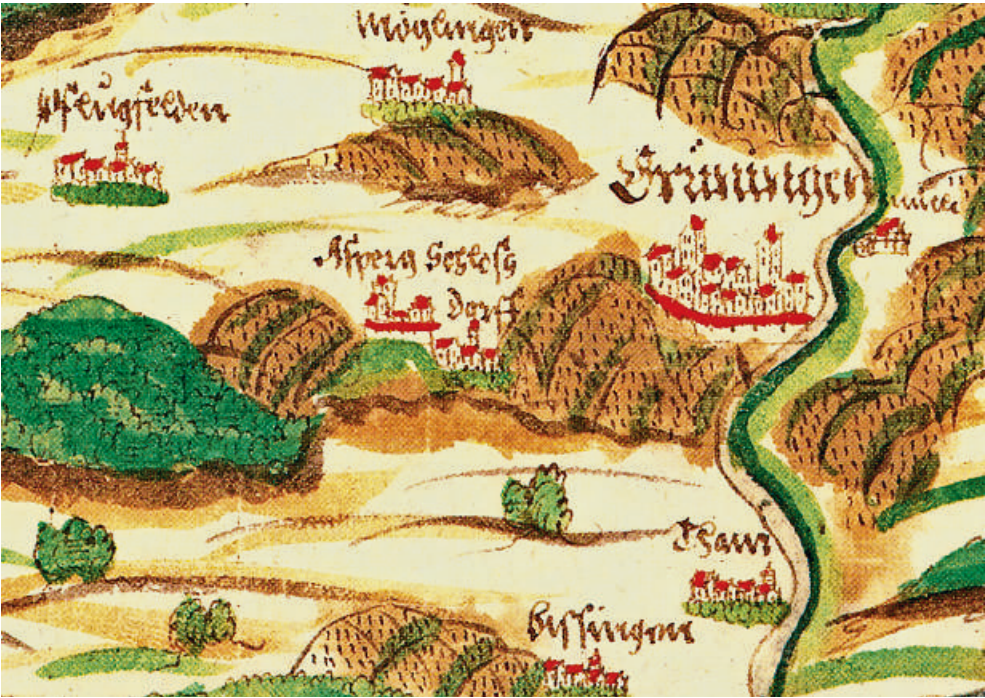 Möglingen
Pflugfelden
Grüningen
Asperg Schloss
Dorff
Tham
Bissingen